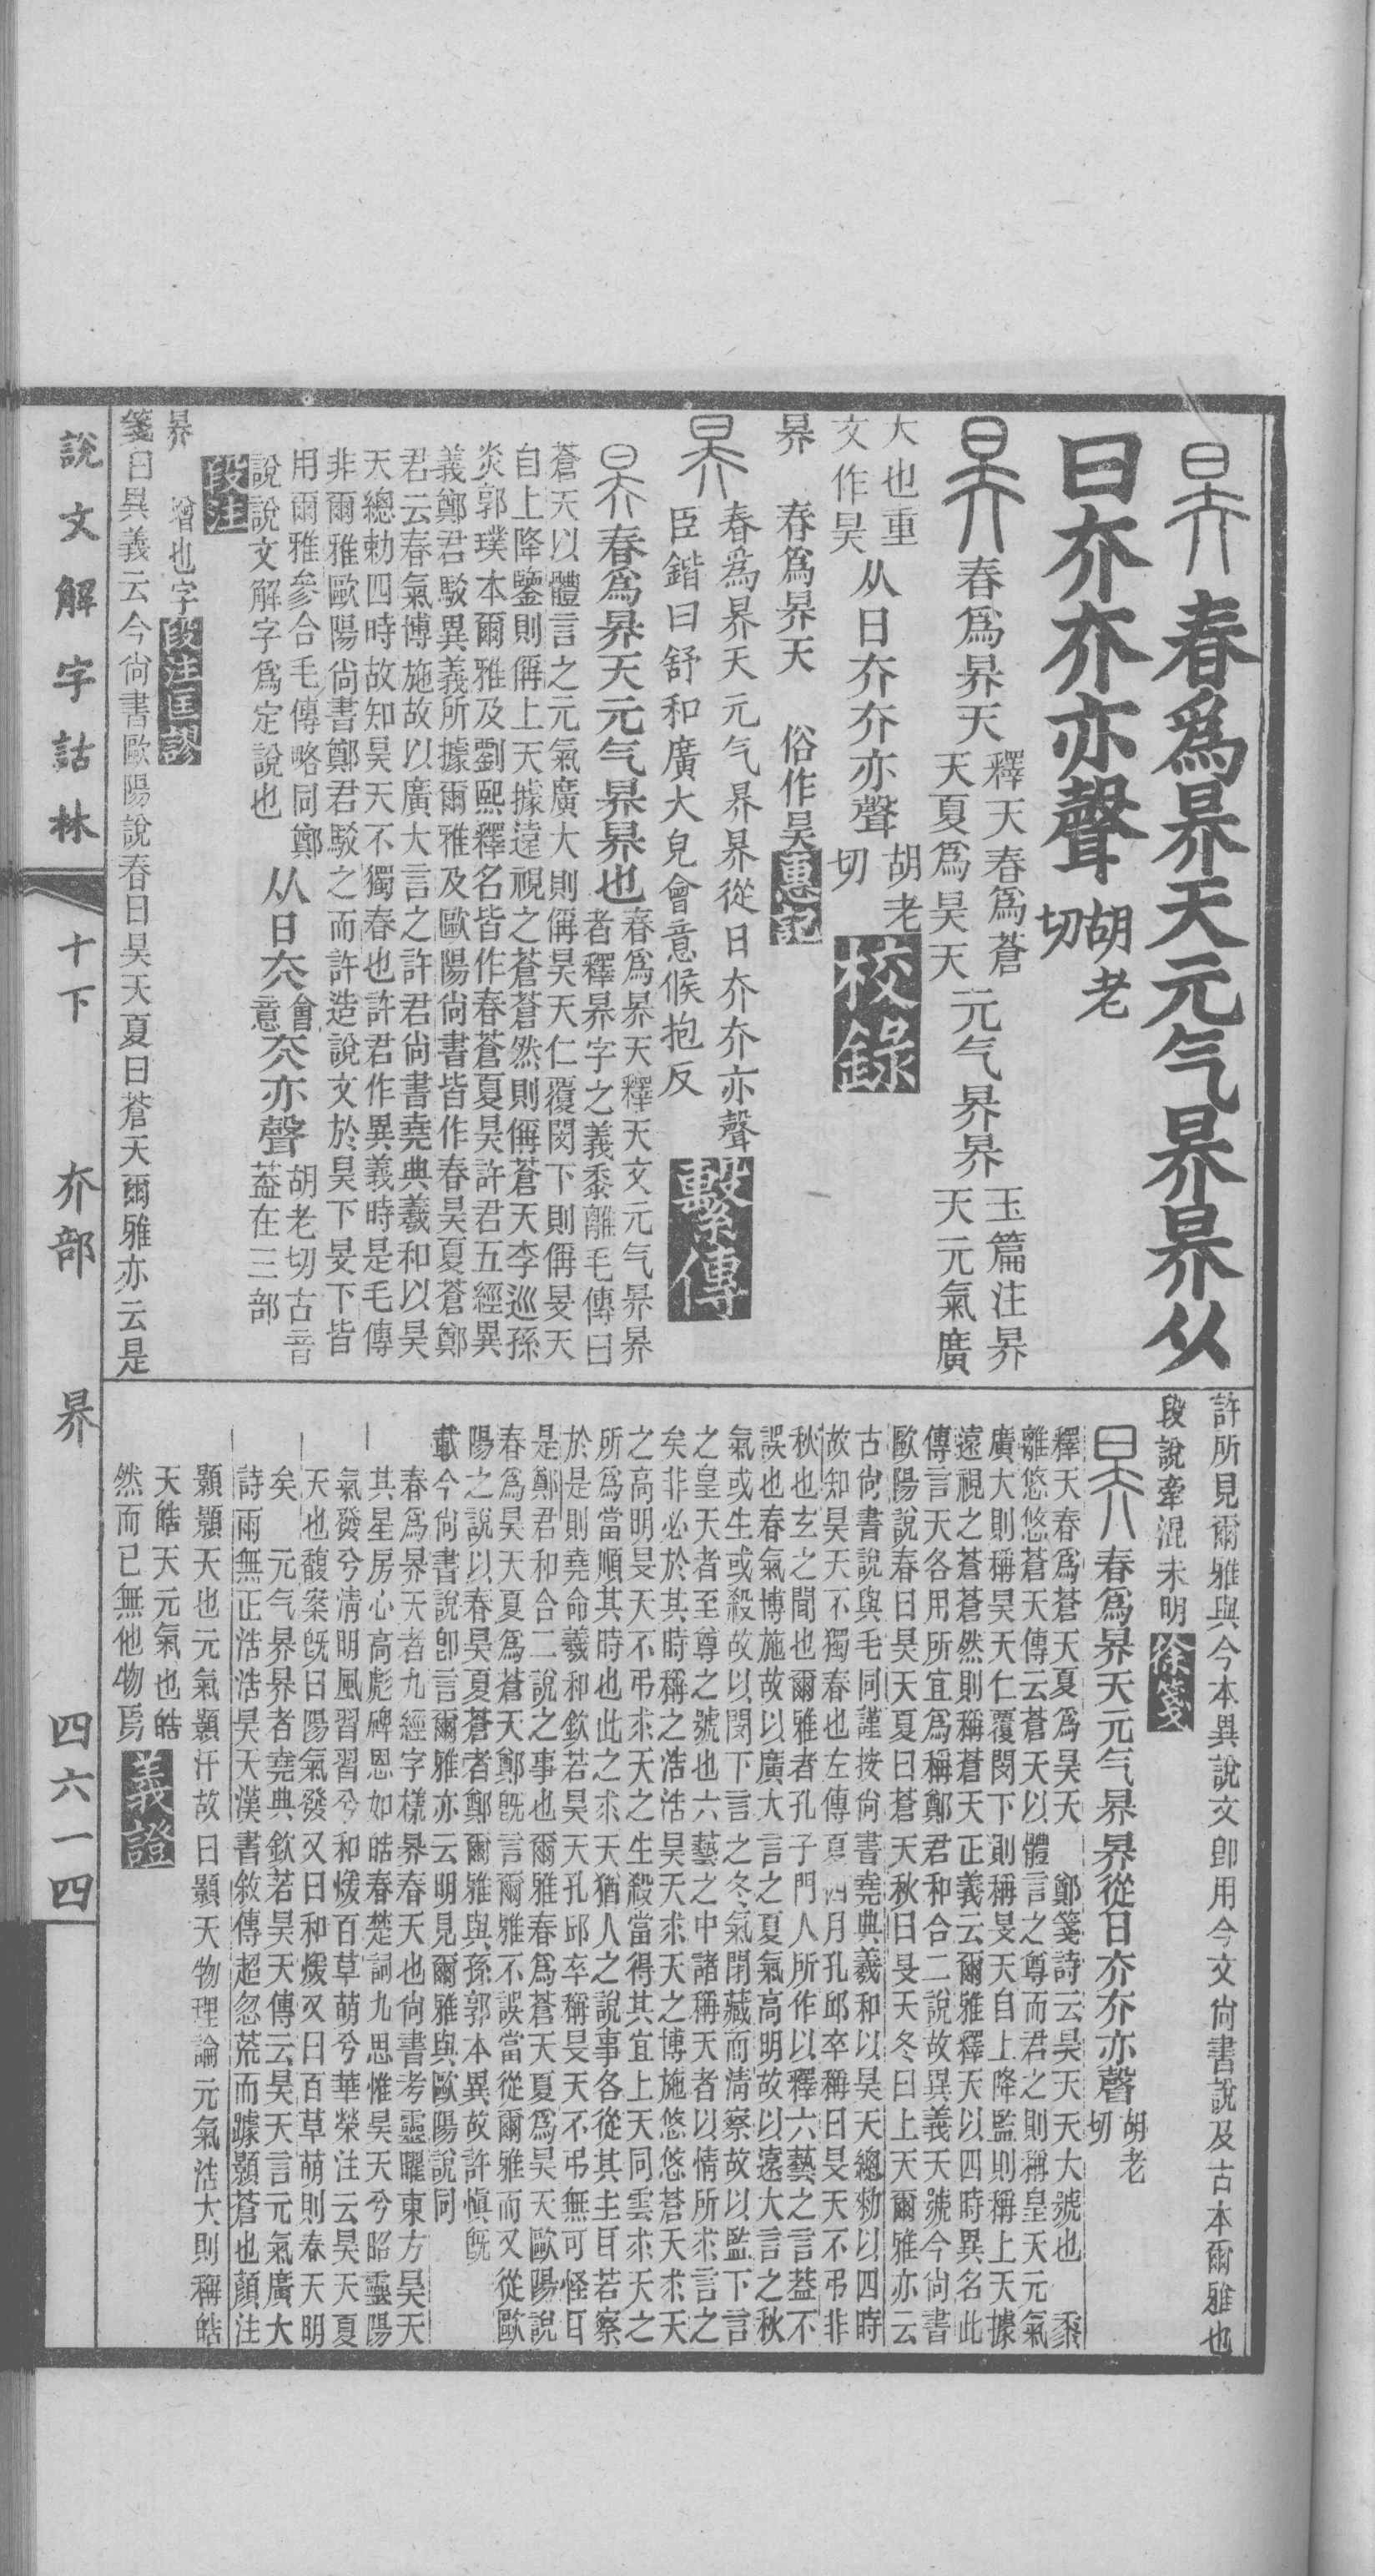 春爲昦天元气昦昦从
日夰夰亦聲胡老切
春爲昦天釋天春爲蒼天夏爲昊天元气昦昦玉篇注昦天元氣廣
大也重文作昊从日夰夰亦聲胡老切校錄
昦　春爲昦天　俗作昊惠記
春爲昦天元气昦昦從日夰夰亦聲
臣鍇曰舒和廣大皃會意候抱反繫傳
春爲昦天元气昦昦也春爲昦天釋天文元气昦昦者釋昦字之義黍離毛傳曰
蒼天以體言之元氣廣大則偁昊天仁覆閔下則偁旻天
自上降鑒則偁上天據遠視之蒼蒼然則偁蒼天李巡孫
炎郭璞本爾雅及劉熙釋名皆作春蒼夏昊許君五經異
義鄭君駁異義所據爾雅及歐陽尚書皆作春昊夏蒼鄭
君云春氣博施故以廣大言之許君尚書堯典羲和以昊
天總勅四時故知昊天不獨春也許君作異義時是毛傳
非爾雅歐陽尚書鄭君駁之而許造說文於昊下旻下皆
用爾雅參合毛傳略同鄭
說說文解字爲定說也从日夰會意夰亦聲胡老切古音葢在三部
段注
昦　增也字段注匡謬
箋曰異義云今尚書歐陽說春曰昊天夏曰蒼天爾雅亦云是
許所見爾雅與今本異說文卽用今文尚書說及古本爾雅也
段說牽混未明徐箋
春爲昦天元气昦昦從日夰夰亦聲胡老切
釋天春爲蒼天夏爲昊天　鄭箋詩云昊天天大號也　黍
離悠悠蒼天傳云蒼天以體言之尊而君之則稱皇天元氣
廣大則稱昊天仁覆閔下則稱旻天自上降監則稱上天據
遠視之蒼蒼然則稱蒼天正義云爾雅釋天以四時異名此
傳言天各用所宜爲稱鄭君和合二說故異義天號今尚書
歐陽說春曰昊天夏曰蒼天秋曰旻天冬曰上天爾雅亦云
古尚書說與毛同謹按尚書堯典羲和以昊天總勑以四時
故知昊天不獨春也左傳夏四月孔邱卒稱曰旻天不弔非
秋也玄之聞也爾雅者孔子門人所作以釋六藝之言葢不
誤也春氣博施故以廣大言之夏氣高明故以遠大言之秋
氣或生或殺故以閔下言之冬氣閉藏而清察故以監下言
之皇天者至尊之號也六藝之中諸稱天者以情所求言之
矣非必於其時稱之浩浩昊天求天之博施悠悠蒼天求天
之高明旻天不弔求天之生殺當得其宜上天同雲求天之
所爲當順其時也此之求天猶人之說事各從其主耳若察
於是則堯命羲和欽若昊天孔邱卒稱旻天不弔無可怪耳
是鄭君和合二說之事也爾雅春爲蒼天夏爲昊天歐陽說
春爲昊天夏爲蒼天鄭旣言爾雅不誤當從爾雅而又從歐
陽之說以春昊夏蒼者鄭爾雅與孫郭本異故許愼旣
載今尚書說卽言爾雅亦云明見爾雅與歐陽說同
春爲昦天者九經字樣昦春天也尚書考靈曜東方昊天
其星房心高彪碑恩如皓春楚詞九思惟昊天兮昭靈陽
氣發兮淸明風習習兮和煖百草萌兮華榮注云昊天夏
天也馥案旣曰陽氣發又曰和煖又曰百草萌則春天明
矣　元气昦昦者堯典欽若昊天傳云昊天言元氣廣大
詩雨無正浩浩昊天漢書敘傳超忽荒而躆顥蒼也顏注
顥顥天也元氣顥汗故曰顥天物理論元氣浩大則稱皓
天皓天元氣也皓
然而已無他物焉義證
說文解字詁林
十下　夰部　昦　四六一四